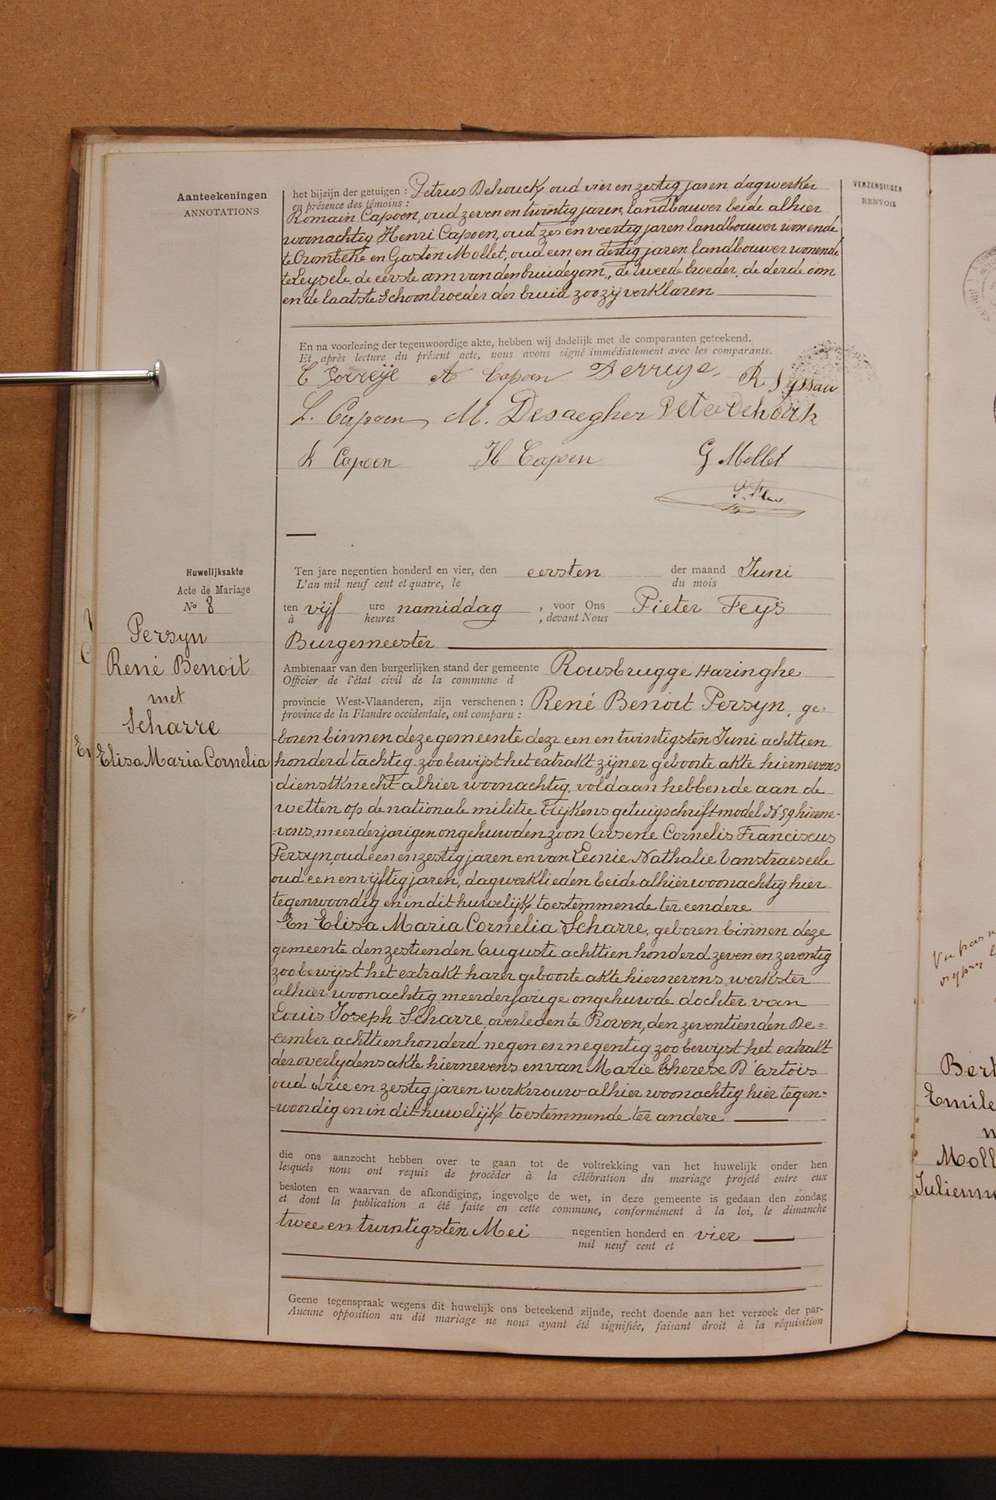 Aanteekeningen
ANNOTATIONS
VERZENDINGEN
RENVOIS
het bijzijn der getuigen : Petrus Dehouck, oud vier en zestig jaren dagwerker
en présence des témoins :
Romain Capoen, oud zeven en twintig jaren, landbouwer beide alhier
woonachtig Henri Capoen, oud zes en veertig jaren landbouwer wonende
te Crombeke en Gaston Mollet, oud een en dertig jaren, landbouwer wonende
te Leysele de eerste oom van den bruidegom, de tweede broeder, de derde oom
en de laatste Schoonbroeder der bruid zoo zij verklaren
En na voorlezing der tegenwoordige akte, hebben wij dadelijk met de comparanten geteekend.
Et après lecture du présent acte, nous avons signé immédiatement avec les comparants.
A Capoen Derruye R. Syssau
L. Capoen M. Desaegher Peter Dehouck
R Capoen H Capoen G Mollet
Huwelijksakte
Acte de Mariage
No 8
Persyn
René Benoit
met
Scharre
Elisa Maria Cornelia
Ten jare negentien honderd en vier, den eersten der maand Juni
L'an mil neuf cent et quatre, le du mois
ten vijf ure namiddag , voor Ons Pieter Feys
à heures , devant Nous
Burgemeester
Ambtenaar van den burgerlijken stand der gemeente Rousbrugge Haringhe
Officier de l'état civil de la commune d
provincie West-Vlaanderen, zijn verschenen : René Benoit Persyn, ge-
province de la Flandre occidentale, ont comparu :
boren binnen deze gemeente deze een en twintigsten Juni achttien
honderd tachtig zoo bewijst het extrakt zijner geboorte akte hiernevens
dienstknecht alhier woonachtig, voldaan hebbende aan de
wetten op de nationale militie blijkens getuigschrift model No 59 hierne-
-vens, meerderjarigen ongehuwden zoon Arsene Cornelis Franciscus
Persyn, oud een en zestig jaren en van Leonie Nathalie Vanstraeseele
oud een en vijftig jaren, dagwerklieden beide alhier woonachtig hier
tegenwoordig en in dit huwelijk toestemmende ter eendere
En Elisa Maria Cornelia Scharre, geboren binnen deze
gemeente den zestienden Auguste achttien honderd zeven en zeventig
zoo bewijst het extrakt harer geboorte akte hiernevens, werkster
alhier woonachtig, meerderjarige ongehuwde dochter van
Louis Joseph Scharre, overleden te Roven, den zeventienden De=
cember achttien honderd negen en negentig zoo bewijst het extrakt
der overlijdens akte hiernevens en van Marie Therese D'Artois
oud drie en zestig jaren werkvrouw alhier woonachtig hier tegen=
-woordig en in dit huwelijk toestemmende ter andere
die ons aanzocht hebben over te gaan tot de voltrekking van het huwelijk onder hen
lesquels nous ont requis de procéder à la célébration du mariage projeté entre eux
besloten en waarvan de afkondiging, ingevolge de wet, in deze gemeente is gedaan den zondag
et dont la publication a été faite en cette commune, conformément à la loi, le dimanche
twee en twintigsten Mei negentien honderd en vier
mil neuf cent et
Geene tegenspraak wegens dit huwelijk ons beteekend zijnde, recht doende aan het verzoek der par-
Aucune opposition au dit mariage ne nous ayant été signifiée, faisant droit à la réquisition
Emile
Julienne